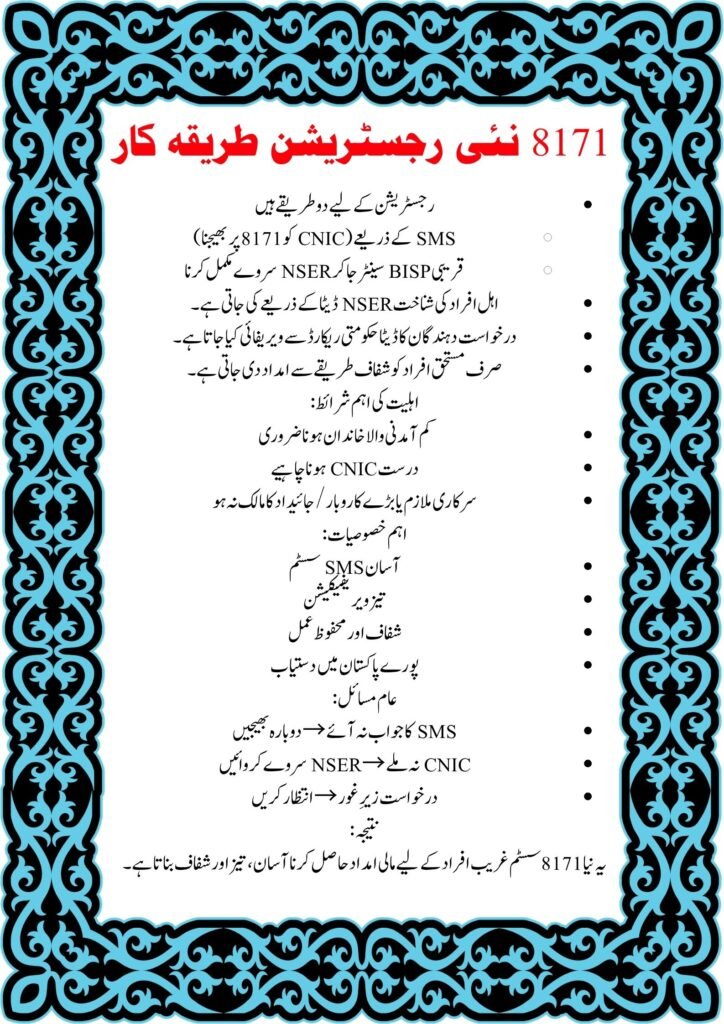 8171 نئی رجسٹریشن طریقہ کار
• رجسٹریشن کے لیے دو طریقے ہیں
○ SMS کے ذریعے (CNIC کو 8171 پر بھیجنا)
○ قریبی BISP سینٹر جا کر NSER سروے مکمل کرنا
• اہل افراد کی شناخت NSER ڈیٹا کے ذریعے کی جاتی ہے۔
• درخواست دہندگان کا ڈیٹا حکومتی ریکارڈ سے ویریفائی کیا جاتا ہے۔
• صرف مستحق افراد کو شفاف طریقے سے امداد دی جاتی ہے۔
اہلیت کی اہم شرائط:
• کم آمدنی والا خاندان ہونا ضروری
• درست CNIC ہونا چاہیے
• سرکاری ملازم یا بڑے کاروبار / جائیداد کا مالک نہ ہو
اہم خصوصیات:
• آسان SMS سسٹم
• تیز ویریفیکیشن
• شفاف اور محفوظ عمل
• پورے پاکستان میں دستیاب
عام مسائل:
• SMS کا جواب نہ آئے → دوبارہ بھیجیں
• CNIC نہ ملے → NSER سروے کروائیں
• درخواست زیرِ غور → انتظار کریں
نتیجہ:
یہ نیا 8171 سسٹم غریب افراد کے لیے مالی امداد حاصل کرنا آسان، تیز اور شفاف بناتا ہے۔